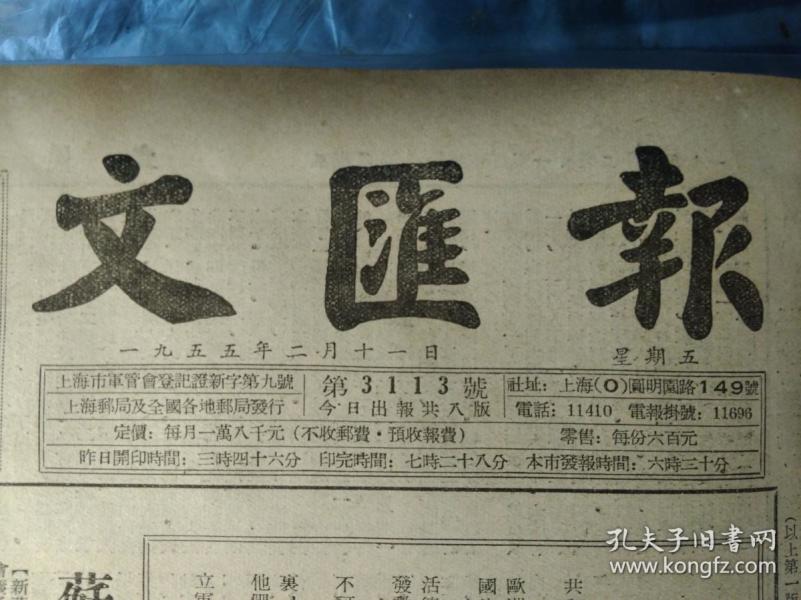 文匯報
一九五五年二月十一日 星期五
上海市軍管會登記證新字第九號
上海郵局及全國各地郵局發行
第3113號
今日出報共八版
社址：上海(0)圓明園路149號
電話：11410 電報掛號：11696
定價：每月一萬八千元(不收郵費·預收報費) 零售：每份六百元
昨日開印時間：三時四十六分 印完時間：七時二十八分 本市發報時間：六時三十分
(以上第一版
共
歐
國
活
發
不
裏
他們
立
蘇
【新
會
孔夫子旧书网
www.kongfz.com